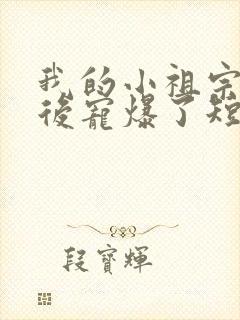 我的小祖宗
後寵爆了短
段寶輝